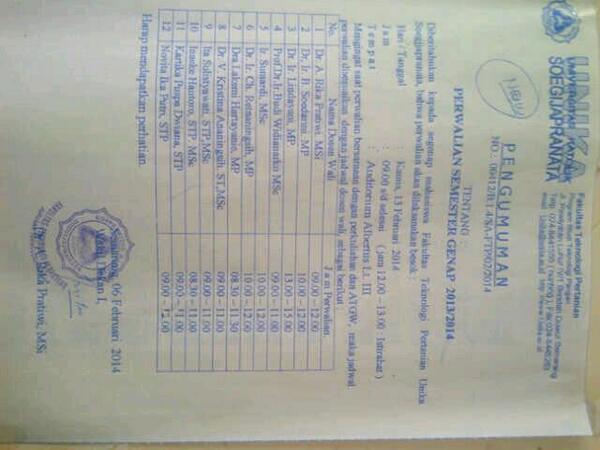 UNIKA
UNIVERSITAS KATOLIK
SOEGIJAPRANATA
Fakultas Teknologi Pertanian
Program Studi Teknologi Pangan
PENGUMUMAN
TENTANG :
PERWALIAN SEMESTER GENAP 2013/2014
Diberitahukan kepada segenap mahasiswa Fakultas Teknologi Pertanian Unika
Soegijapranata, bahwa perwalian akan dilaksanakan besok :
Hari / Tanggal : Kamis, 13 Februari 2014
Jam : 09.00 s/d selesai ( jam 12.00 – 13.00 Istirahat )
Tempat : Auditorium Albertus Lt. III
Mengingat saat perwalian bersamaan dengan perkuliahan dan ATGW, maka jadwal
perwalian menyesuaikan dengan jadwal dosen wali, sebagai berikut :
Nama Dosen Wali Jam Perwalian
1 Dr A. Rika Pratiwi, MSi 09.00 – 12.00
2 Dr. Ir. B. Soedarini, MP 10.00 – 12.00
3 Dr. Ir. Lindayani, MP 13.00 – 15.00
4 Prof Dr Ir. Budi Widianarko MSc 09.00 – 11.00
5 Ir. Sumardi, MSc 10.00 – 12.00
6 Dr. Ir. Ch. Retnaningsih, MP 10.00 – 12.00
7 Dra Laksmi Hartayanie, MP 08.30 – 11.30
8 Dr. V. Kristina Ananingsih, ST,MSc 09.00 – 11.00
9 Ita Sulistyawati, STP,MSc 09.00 – 11.00
10 Inneke Hantoro, STP, MSc 08.30 – 11.00
11 Kartika Puspa Dwiana, STP 09.00 – 11.00
12 Novita Ika Putri, STP 09.00 – 12.00
Harap mendapatkan perhatian
Semarang, 06 Februari 2014
Wakil Dekan I,
Rika Pratiwi, MSi